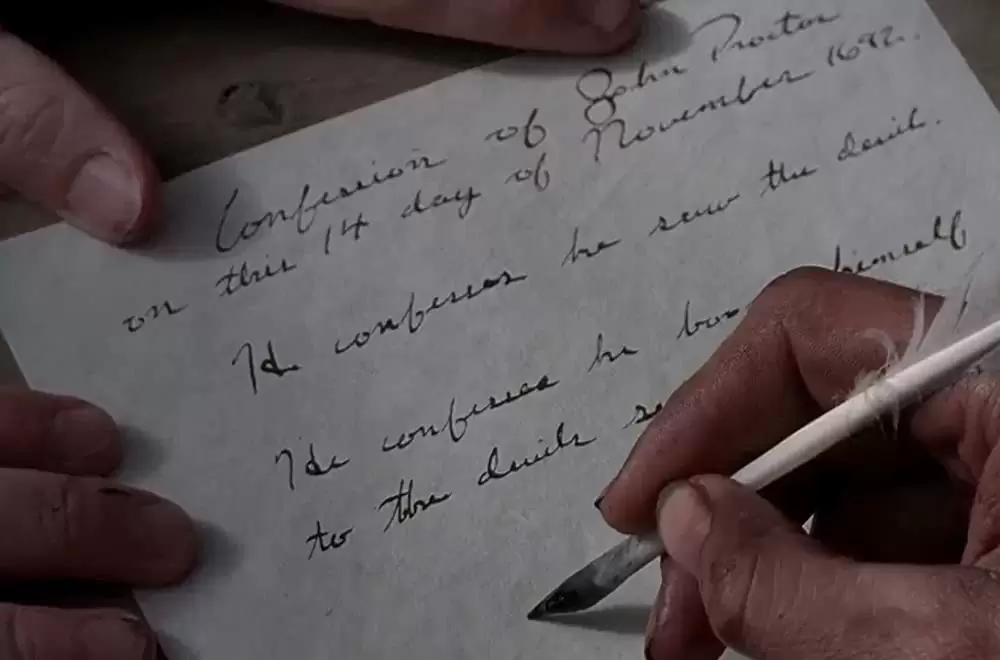 Confession of John Proctor
on this 14 day of November 1692.
He confesses he saw the devil.
He confesses he himself
to the devils